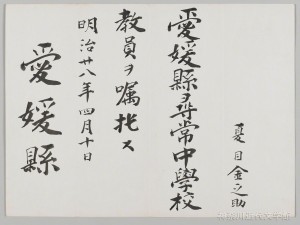 夏目金之助
愛媛縣尋常中學校
教員ヲ嘱托ス
明治廿八年四月十日
愛媛縣